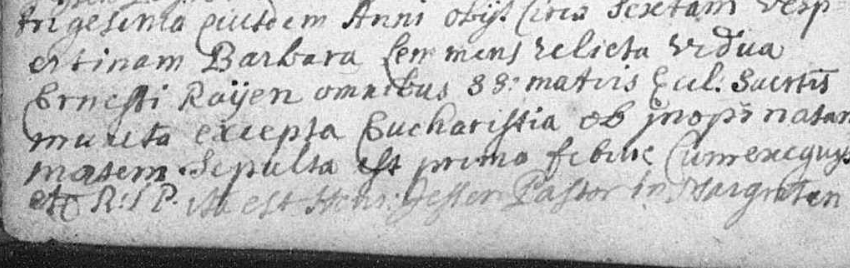 trigesima eiusdem Anni obijt circa Sextam Vesp-
ertinam Barbara Lemmens relicta vidua
Ernesti Raijen omnibus SS: matris Eccl. Sacrtis
munita excepta Eucharistia ob inopinatam
mortem. Sepulta est prima febru: Cum exequijs
etc R: I P. ita est Henr: Jessen Pastor in Margraten